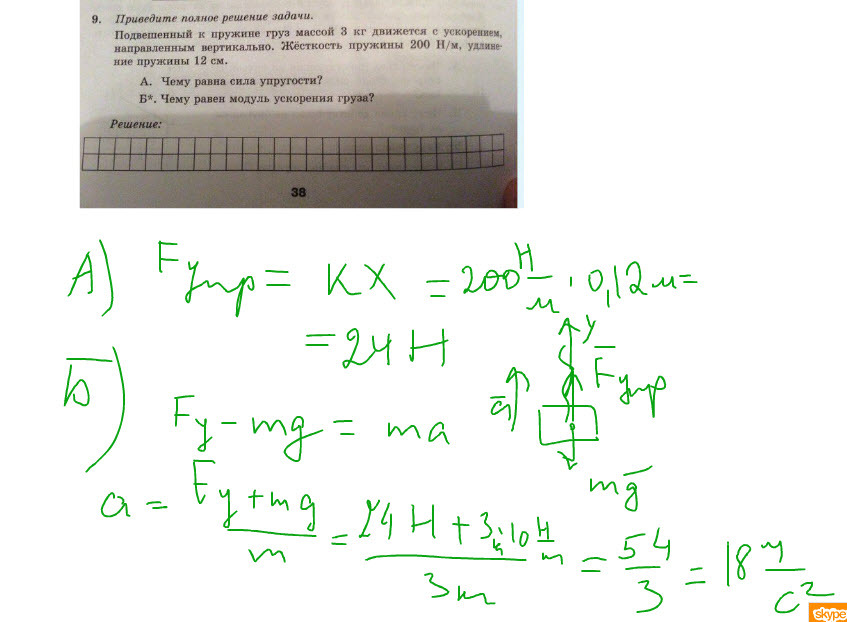 9. Приведите полное решение задачи.
Подвешенный к пружине груз массой 3 кг движется с ускорением,
направленным вертикально. Жёсткость пружины 200 Н/м, удлине-
ние пружины 12 см.
А. Чему равна сила упругости?
Б*. Чему равен модуль ускорения груза?
Решение:
38
А) Fупр = KX = 200 Н/м · 0,12 м =
= 24 Н
y
Fупр
a
mg
Б)
Fу - mg = ma
a = (Fу + mg)/m = (24 Н + 3 · 10 Н)/3 = 54/3 = 18 м/с²
skype